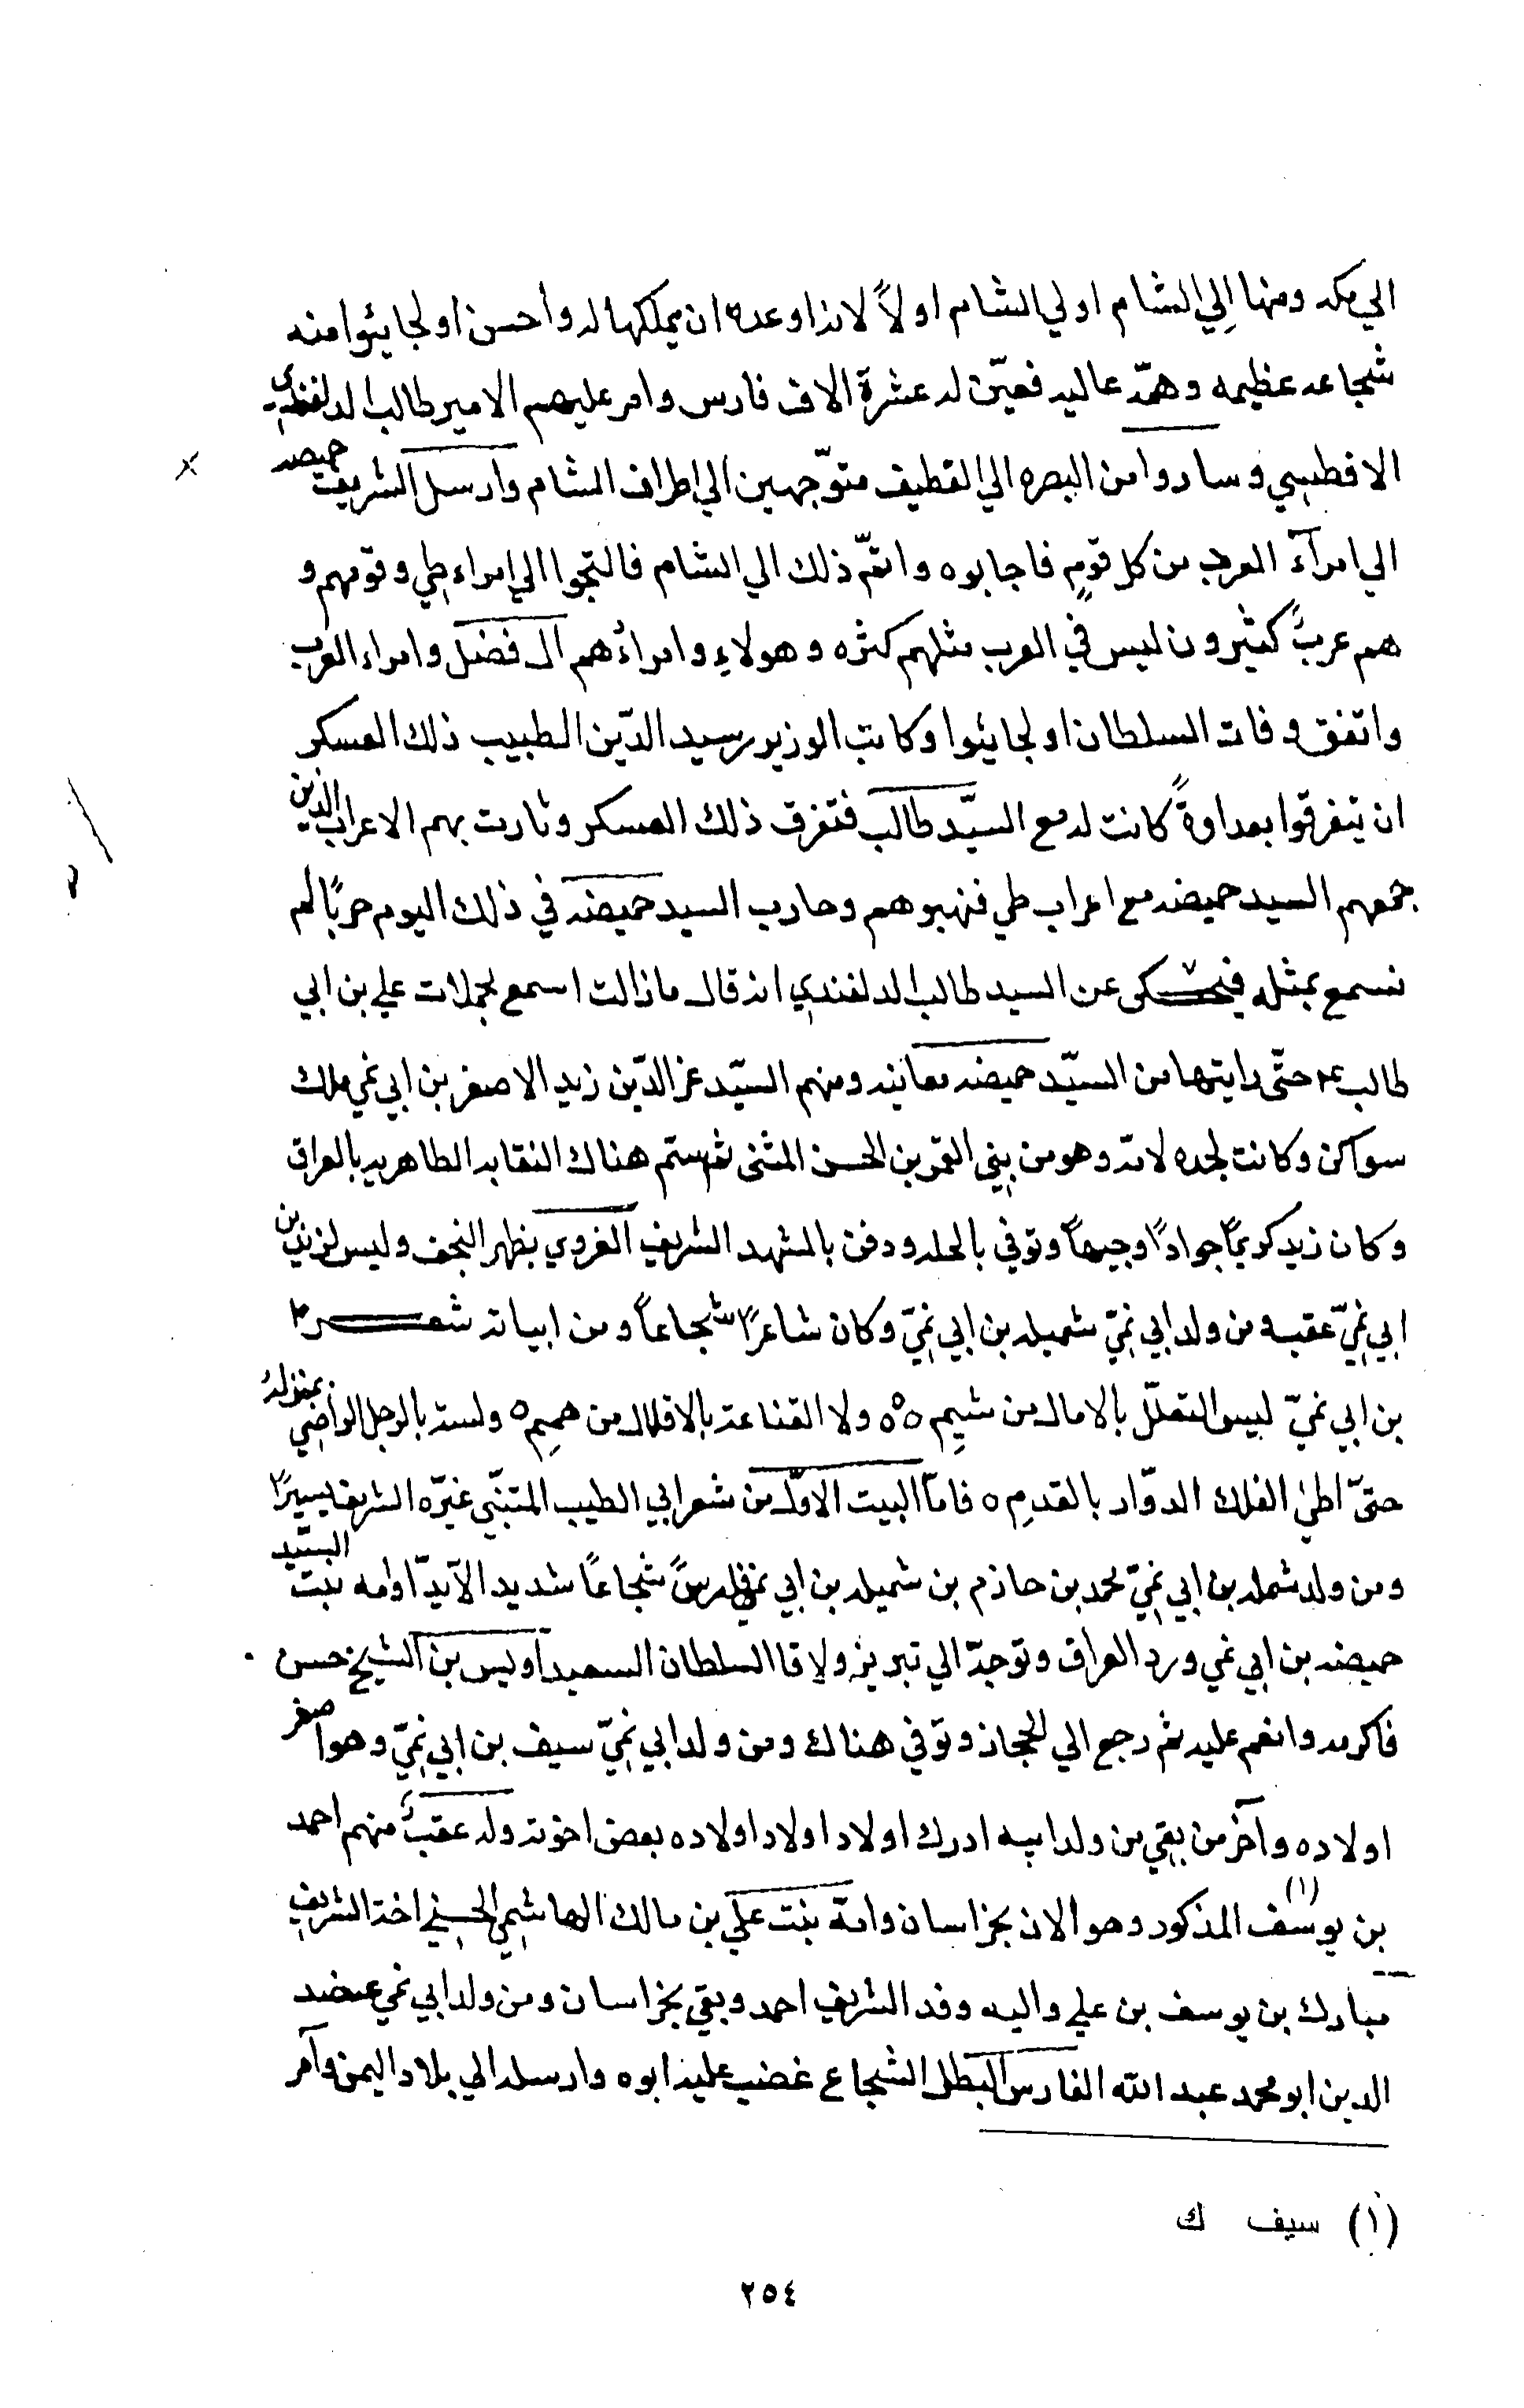 الي مكه ومنها إلي الشام او لي الشام اولاً لانه اوعده ان يملكها له وأحسن اولجايتوا منه
شجاعه عظيمه وهمّه عاليه فعيّن له عشرة الاف فارس وامر عليهم الامير طالب الدلفندي
الافطسي وساروا من البصره الي القطيف متوّجهين الي اطراف الشام وارسل الشريف حميضه
الي امرآء العرب من كل قومٍ فاجابوه واتمّ ذلك الي الشام فالتجوا الي امراء طي وقومهم و
هم عربٌ كثيرون ليس في العرب مثلهم كثره وهولاءِ وامراءُهم ال فضل وامراء العرب
واتفق وفات السلطان اولجايتوا وكاتب الوزير رسيد الدّين الطبيب ذلك العسكر
ان يتفرقوا بعداوةً كانت له مع السيّد طالب فتفرق ذلك العسكر وثارت بهم الاعراب الذين
جمعهم السيد حميضه مع اعراب طي فنهبوهم وحارب السيد حميضه في ذلك اليوم حربًا لم
نسمع بمثله فيحكى عن السيد طالب الدلفندي انه قال ما زالت اسمع بحملات علي بن ابي
طالب ع حتّى رايتها من السيّد حميضه معاينه ومنهم السيّد عز الدّين زيد الاصغر بن ابي نمي ملك
سواكن وكانت لجده لامّه وهو من بني القمر بن الحسن المثنى ثم ستم هناك النقابه الطاهريه بالعراق
وكان زيد كريمًا جوادًا وجيهاً وتوفي بالحله ودفن بالمشهد الشريف الغروي بظهر النجف وليس لزيد بن
ابي نميّ عقب ومن ولد ابي نميّ شميله بن ابي نميّ وكان شاعرًا شجاعاً ومن ابياته شعر
بن ابي نميّ ليس التعلّل بالامال من شيمِ ولا القناعة بالاقلال من هممِ ولست بالرجل الراضي بمنزلةُ
حتىّ اطئ الفلك الدوّار بالقدمِ فامّا البيت الاوّل من شعر ابي الطيب المتنبّي غيّره الشريف يسيرًا
ومن ولد شمله بن ابي نميّ محمد بن حازم بن شميله بن ابي نمي فارسًا شجاعًا شديد الآيد وامه بنت السيّد
حميضه بن ابي نمي ورد العراق وتوجّه الي تبريز ولاقا السلطان السعيد اويس بن الشيخ حسن
فاكرمه وانعم عليه ثم رجع الي الحجاز وتوّفي هناك ومن ولد ابي نميّ سيف بن ابي نميّ وهو اصغر
اولاده وآخر من بقي من ولد ابيه ادرك اولاد اولاد اولاده بعض اخوته وله عقبٌ منهم احمد
بن يوسف (١) المذكور وهو الان بخراسان وامهّ بنت علي بن مالك الهاشمي الحسني اخت الشريف
مبارك بن يوسف بن علي واليه وفد الشريف احمد وبقي بخراسان ومن ولد ابي نمي عضد
الدين ابو محمد عبد الله الفارس البطل الشجاع غضب عليه ابوه وارسله الي بلاد اليمن وآمر
(١) سيف ك
٢٥٤